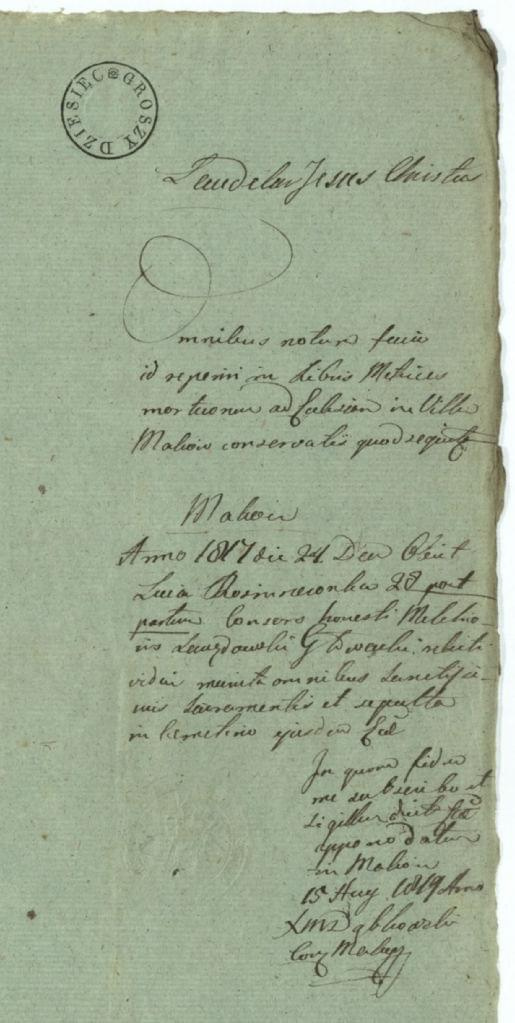 DZIESIEC GROSZY
Laudetur Jesus Christus
Omnibus notum facio
id reperiri in Libris Metrices
mortuorum ad Ecclesiam in Villa
Makow conservatis quod sequitur
Makow
Anno 1817 die 24 Decem Obiit
Lucia 23 post
partum Consors honesti Melchio-
ris relicti
vidui munita omnibus Sanctissi-
mis Sacramentis et sepulta
in Cemeterio ejusdem Eccl
In quorum fidem
me subscribo et
Sigillum
appono datum
in Makow
15 Aug 1819 Anno